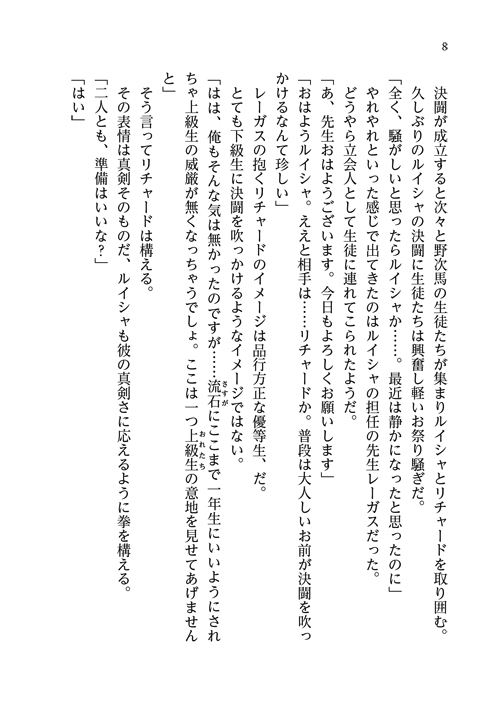 8
決闘が成立すると次々と野次馬の生徒たちが集まりルイシャとリチャードを取り囲む。
久しぶりのルイシャの決闘に生徒たちは興奮し軽いお祭り騒ぎだ。
「全く、騒がしいと思ったらルイシャか……。最近は静かになったと思ったのに」
やれやれといった感じで出てきたのはルイシャの担任の先生レーガスだった。
どうやら立会人として生徒に連れてこられたようだ。
「あ、先生おはようございます。今日もよろしくお願いします」
「おはようルイシャ。ええと相手は……リチャードか。普段は大人しいお前が決闘を吹っ
かけるなんて珍しい」
レーガスの抱くリチャードのイメージは品行方正な優等生、だ。
とても下級生に決闘を吹っかけるようなイメージではない。
「はは、俺もそんな気は無かったのですが……流石にここまで一年生にいいようにされ
ちゃ上級生の威厳が無くなっちゃうでしょ。ここは一つ上級生の意地を見せてあげません
と」
そう言ってリチャードは構える。
その表情は真剣そのものだ、ルイシャも彼の真剣さに応えるように拳を構える。
「二人とも、準備はいいな?」
「はい」